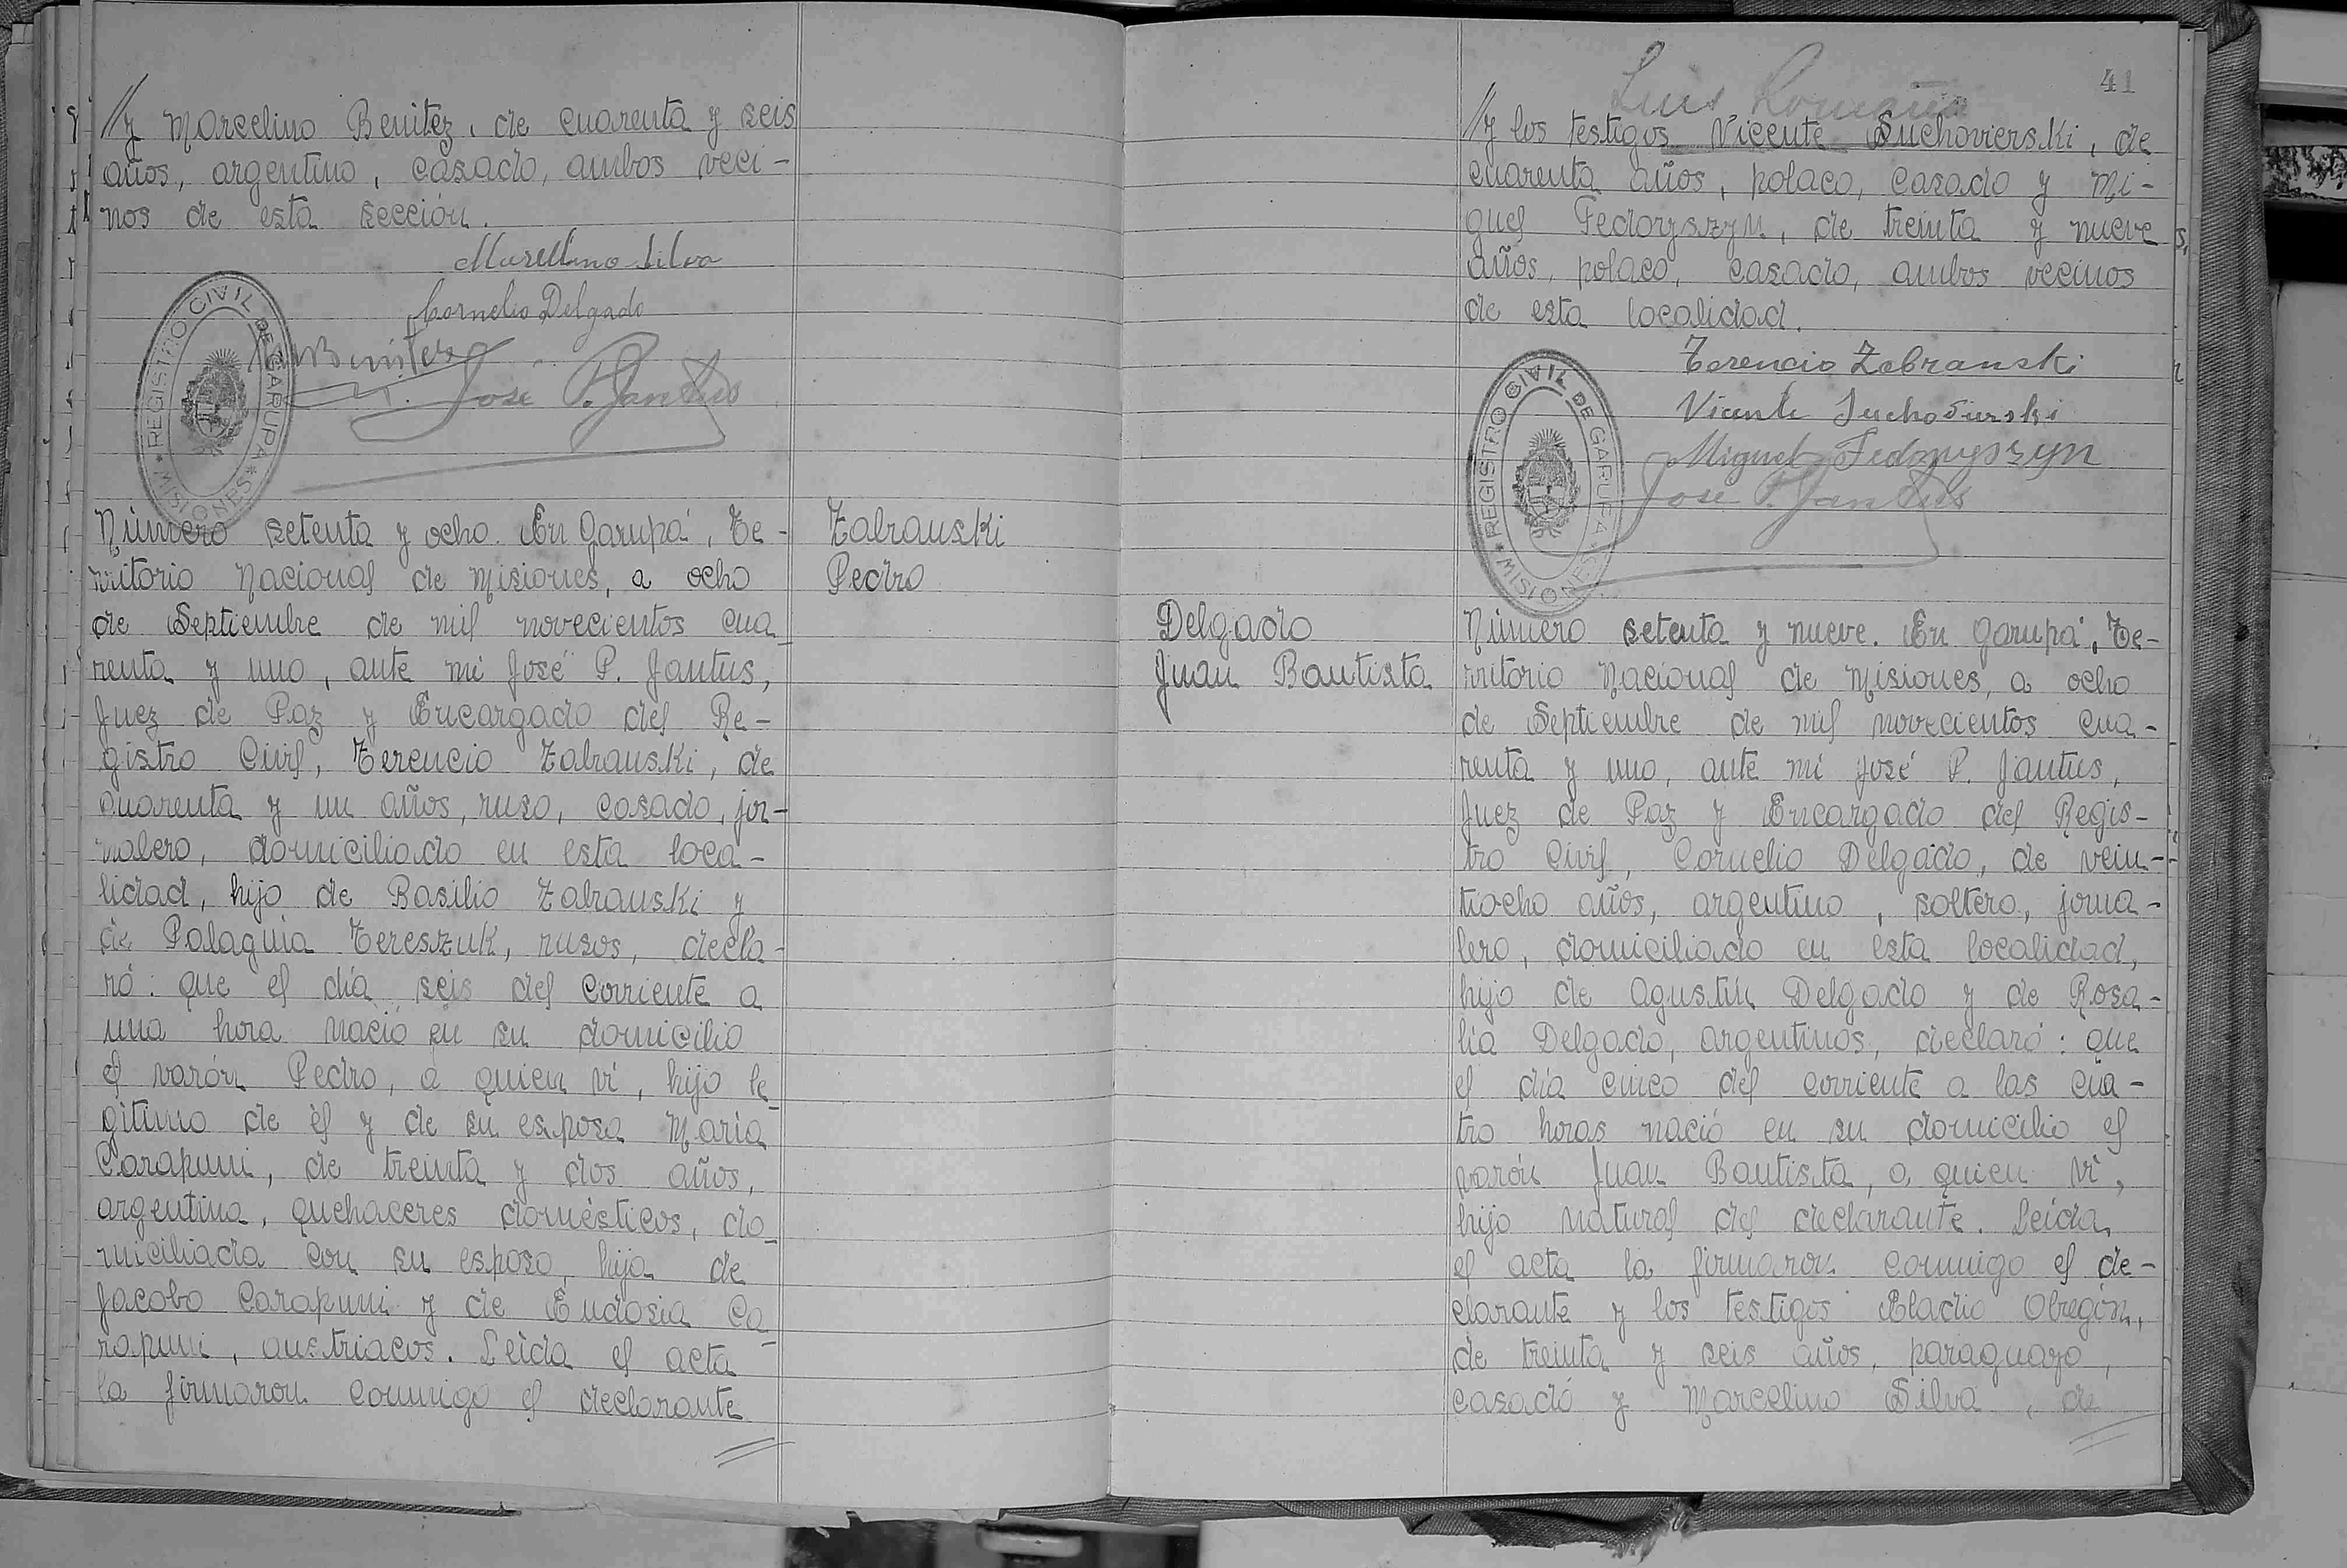 // y Marcelino Benitez, de cuarenta y seis
años, argentino, casado, ambos veci-
nos de esta sección.
Marcelino Silva
Cornelio Delgado
Benitez
José P. Jantus
REGISTRO CIVIL DE GARUPA
* MISIONES *
Número setenta y ocho. En Garupá, Te-
rritorio Nacional de Misiones, a ocho
de Septiembre de mil novecientos cua-
renta y uno, ante mi José P. Jantus,
Juez de Paz y Encargado del Re-
gistro Civil, Terencio Zabrauski, de
cuarenta y un años, ruso, casado, jor-
nalero, domiciliado en esta loca-
lidad, hijo de Basilio Zabrauski y
de Palaguia Tereszuk, rusos, decla-
ró: que el día seis del corriente a
una hora nació en su domicilio
el varón Pedro, a quien ví, hijo le-
gítimo de él y de su esposa María
Carapuni, de treinta y dos años,
argentina, quehaceres domésticos, do-
miciliada con su esposo, hija de
Jacobo Carapuni y de Eudosia Ca-
rapuni, austriacos. Leída el acta
la firmaron conmigo el declarante
Zabrauski
Pedro
41
Luis
// y los testigos Vicente Suchovierski, de
cuarenta años, polaco, casado y Mi-
guel Fedoryszyn, de treinta y nueve
años, polaco, casado, ambos vecinos
de esta localidad.
Terencio Zabranski
Vicente Suchovierski
Miguel Fedoryszyn
José P. Jantus
REGISTRO CIVIL DE GARUPA
* MISIONES *
Delgado
Juan Bautista
Número setenta y nueve. En Garupá, Te-
rritorio Nacional de Misiones, a ocho
de Septiembre de mil novecientos cua-
renta y uno, ante mi José P. Jantus,
Juez de Paz y Encargado del Regis-
tro Civil, Cornelio Delgado, de vein-
tiocho años, argentino, soltero, jorna-
lero, domiciliado en esta localidad,
hijo de Agustín Delgado y de Rosa-
lía Delgado, argentinos, declaró: que
el día cinco del corriente a las cua-
tro horas nació en su domicilio el
varón Juan Bautista, a quien ví,
hijo natural del declarante. Leída
el acta la firmaron conmigo el de-
clarante y los testigos Eladio Obregón,
de treinta y seis años, paraguayo,
casado y Marcelino Silva, de